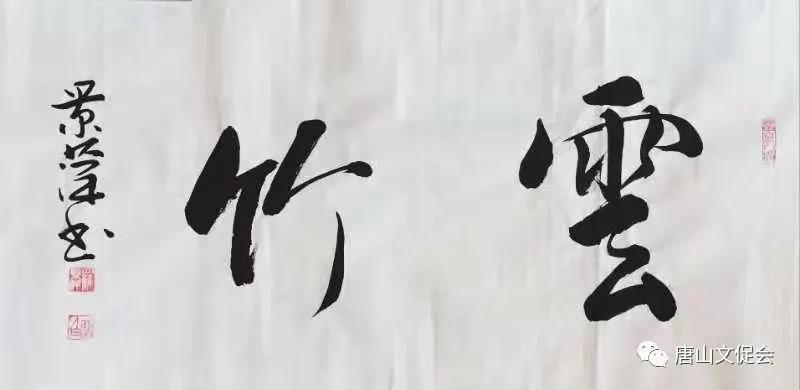 雲竹
景萍书
唐山文促会